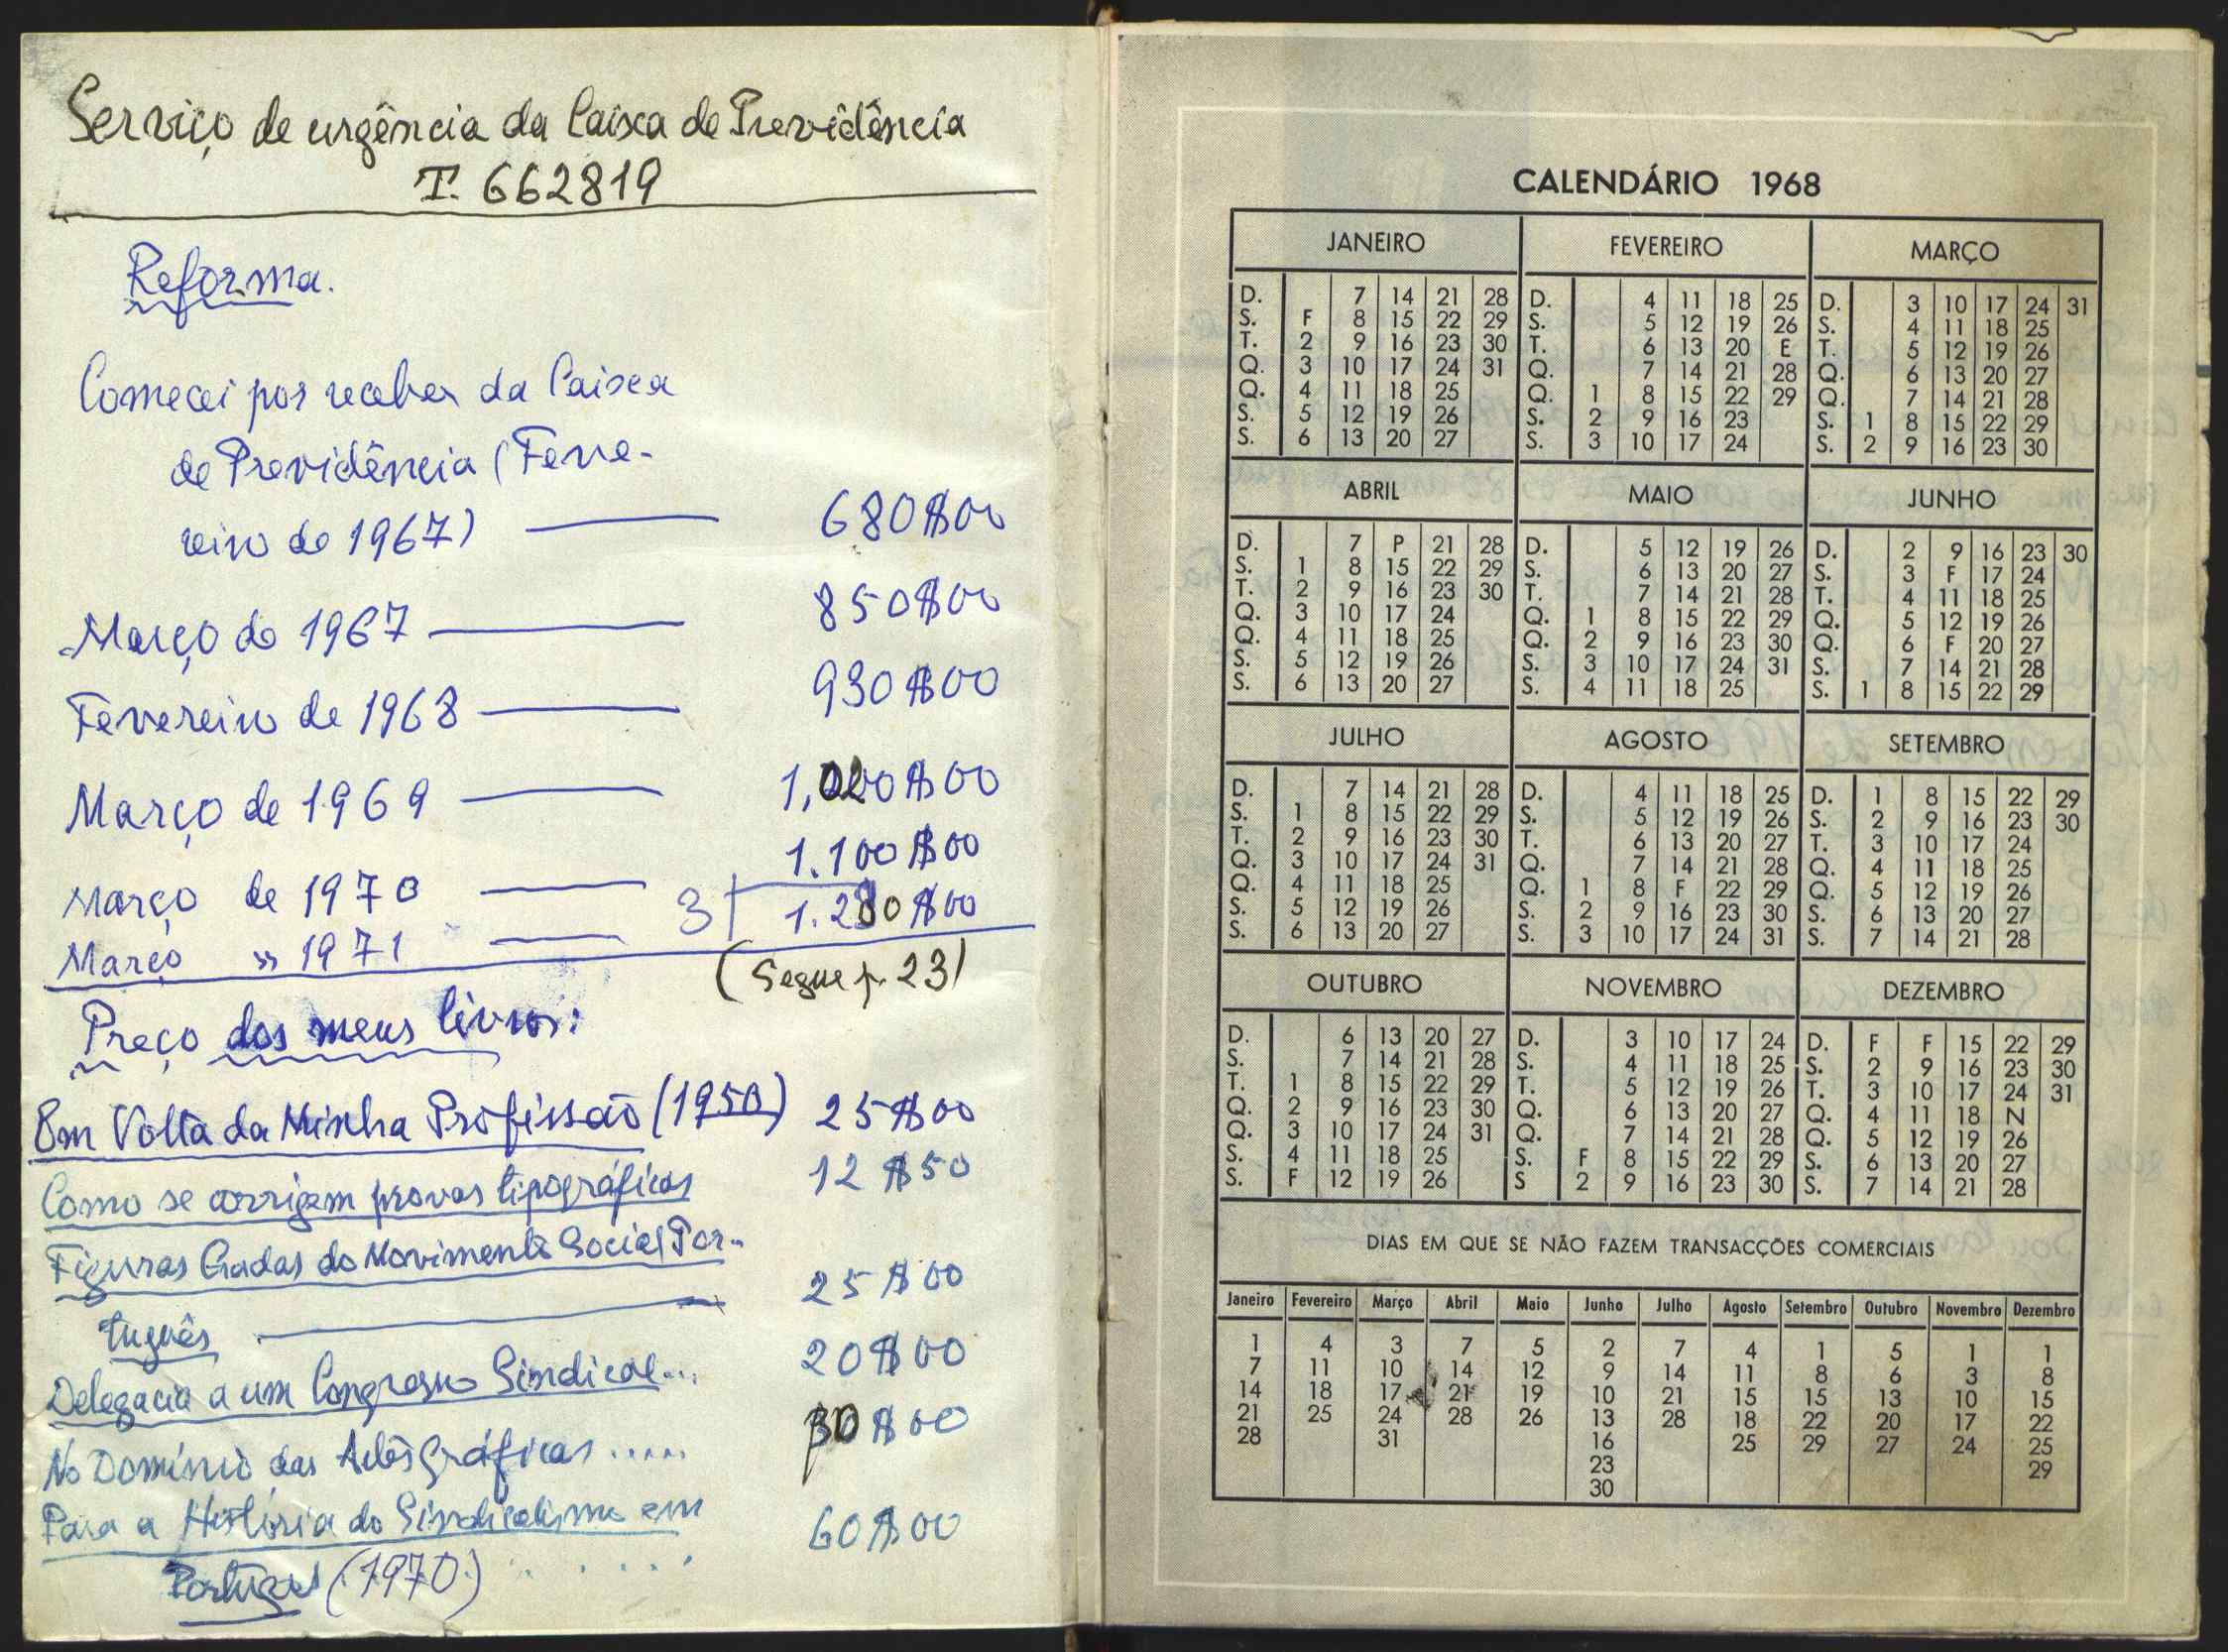 Serviço de urgência da Caixa de Previdência
T. 662819
Reforma.
Comecei por receber da Caixa
de Previdência (Feve-
reiro de 1967) 680$00
Março de 1967 850$00
Fevereiro de 1968 930$00
Março de 1969 1,020$00
Março de 1970 1.100$00
Março » 1971 3 1.280$00
(Segue p. 23)
Preço dos meus livros:
Em Volta da Minha Profissão (1950) 25$00
Como se corrigem provas tipográficas 12$50
Figuras Gradas do Movimento Social Por-
tuguês 25$00
Delegacia a um Congresso Sindical... 20$00
No Domínio das Artes Gráficas ..... 30$00
Para a História do Sindicalismo em
Portugal (1970) ...... 60$00
CALENDÁRIO 1968
JANEIRO FEVEREIRO MARÇO
D. 7 14 21 28 D. 4 11 18 25 D. 3 10 17 24 31
S. F 8 15 22 29 S. 5 12 19 26 S. 4 11 18 25
T. 2 9 16 23 30 T. 6 13 20 E T. 5 12 19 26
Q. 3 10 17 24 31 Q. 7 14 21 28 Q. 6 13 20 27
Q. 4 11 18 25 Q. 1 8 15 22 29 Q. 7 14 21 28
S. 5 12 19 26 S. 2 9 16 23 S. 1 8 15 22 29
S. 6 13 20 27 S. 3 10 17 24 S. 2 9 16 23 30
ABRIL MAIO JUNHO
D. 7 P 21 28 D. 5 12 19 26 D. 2 9 16 23 30
S. 1 8 15 22 29 S. 6 13 20 27 S. 3 F 17 24
T. 2 9 16 23 30 T. 7 14 21 28 T. 4 11 18 25
Q. 3 10 17 24 Q. 1 8 15 22 29 Q. 5 12 19 26
Q. 4 11 18 25 Q. 2 9 16 23 30 Q. 6 F 20 27
S. 5 12 19 26 S. 3 10 17 24 31 S. 7 14 21 28
S. 6 13 20 27 S. 4 11 18 25 S. 1 8 15 22 29
JULHO AGOSTO SETEMBRO
D. 7 14 21 28 D. 4 11 18 25 D. 1 8 15 22 29
S. 1 8 15 22 29 S. 5 12 19 26 S. 2 9 16 23 30
T. 2 9 16 23 30 T. 6 13 20 27 T. 3 10 17 24
Q. 3 10 17 24 31 Q. 7 14 21 28 Q. 4 11 18 25
Q. 4 11 18 25 Q. 1 8 F 22 29 Q. 5 12 19 26
S. 5 12 19 26 S. 2 9 16 23 30 S. 6 13 20 27
S. 6 13 20 27 S. 3 10 17 24 31 S. 7 14 21 28
OUTUBRO NOVEMBRO DEZEMBRO
D. 6 13 20 27 D. 3 10 17 24 D. F F 15 22 29
S. 7 14 21 28 S. 4 11 18 25 S. 2 9 16 23 30
T. 1 8 15 22 29 T. 5 12 19 26 T. 3 10 17 24 31
Q. 2 9 16 23 30 Q. 6 13 20 27 Q. 4 11 18 N
Q. 3 10 17 24 31 Q. 7 14 21 28 Q. 5 12 19 26
S. 4 11 18 25 S. F 8 15 22 29 S. 6 13 20 27
S. F 12 19 26 S 2 9 16 23 30 S. 7 14 21 28
DIAS EM QUE SE NÃO FAZEM TRANSACÇÕES COMERCIAIS
Janeiro Fevereiro Março Abril Maio Junho Julho Agosto Setembro Outubro Novembro Dezembro
1 4 3 7 5 2 7 4 1 5 1 1
7 11 10 14 12 9 14 11 8 6 3 8
14 18 17 21 19 10 21 15 15 13 10 15
21 25 24 28 26 13 28 18 22 20 17 22
28 31 16 25 29 27 24 25
23 29
30